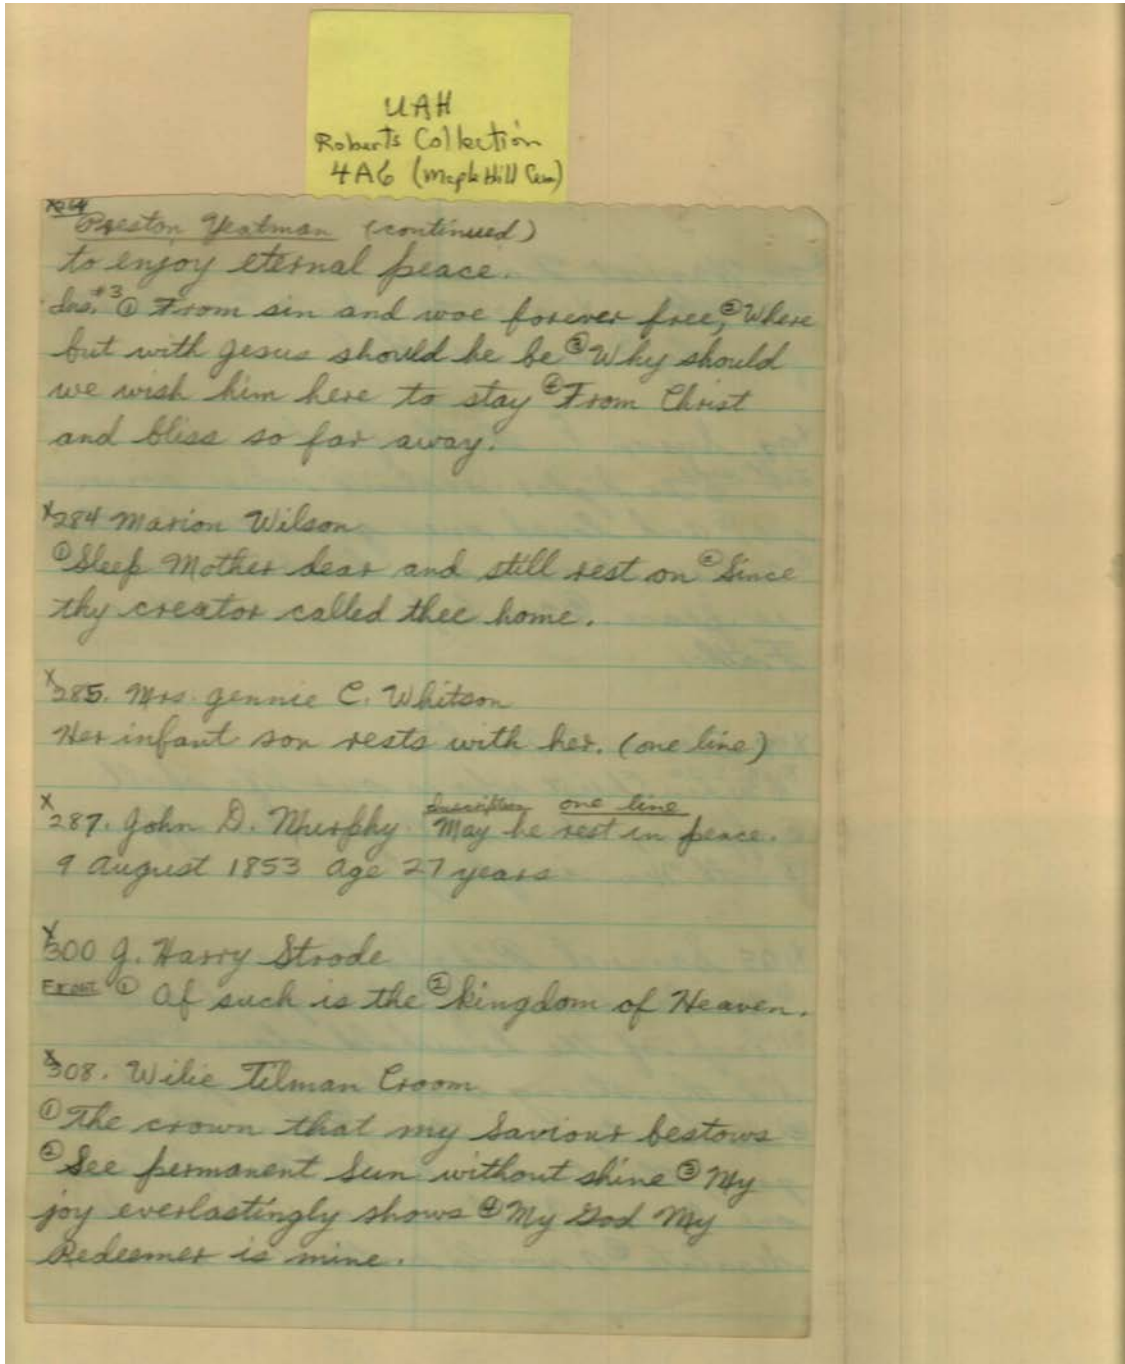 UAH
Roberts Collection
4A6 (Maple Hill Cem)
x264
Preston Yeatman (continued)
to enjoy eternal peace.
Ins. #3 ① From sin and woe forever free, ② Where
but with Jesus should he be ③ Why should
we wish him here to stay ④ From Christ
and bliss so far away.
x284 Marion Wilson
① Sleep Mother dear and still rest on ② Since
thy creator called thee home.
x285. Mrs. Jennie C. Whitson
Her infant son rests with her. (one line)
inscription one line
x287. John D. Murphy May he rest in peace.
9 August 1853 Age 27 years
x300 J. Harry Strode
Front ① Of such is the ② kingdom of Heaven.
x308. Wilie Tilman Croom
① The crown that my Saviour bestows
② See permanent Sun without shine ③ My
joy everlastingly shows ④ My God My
Redeemer is mine.